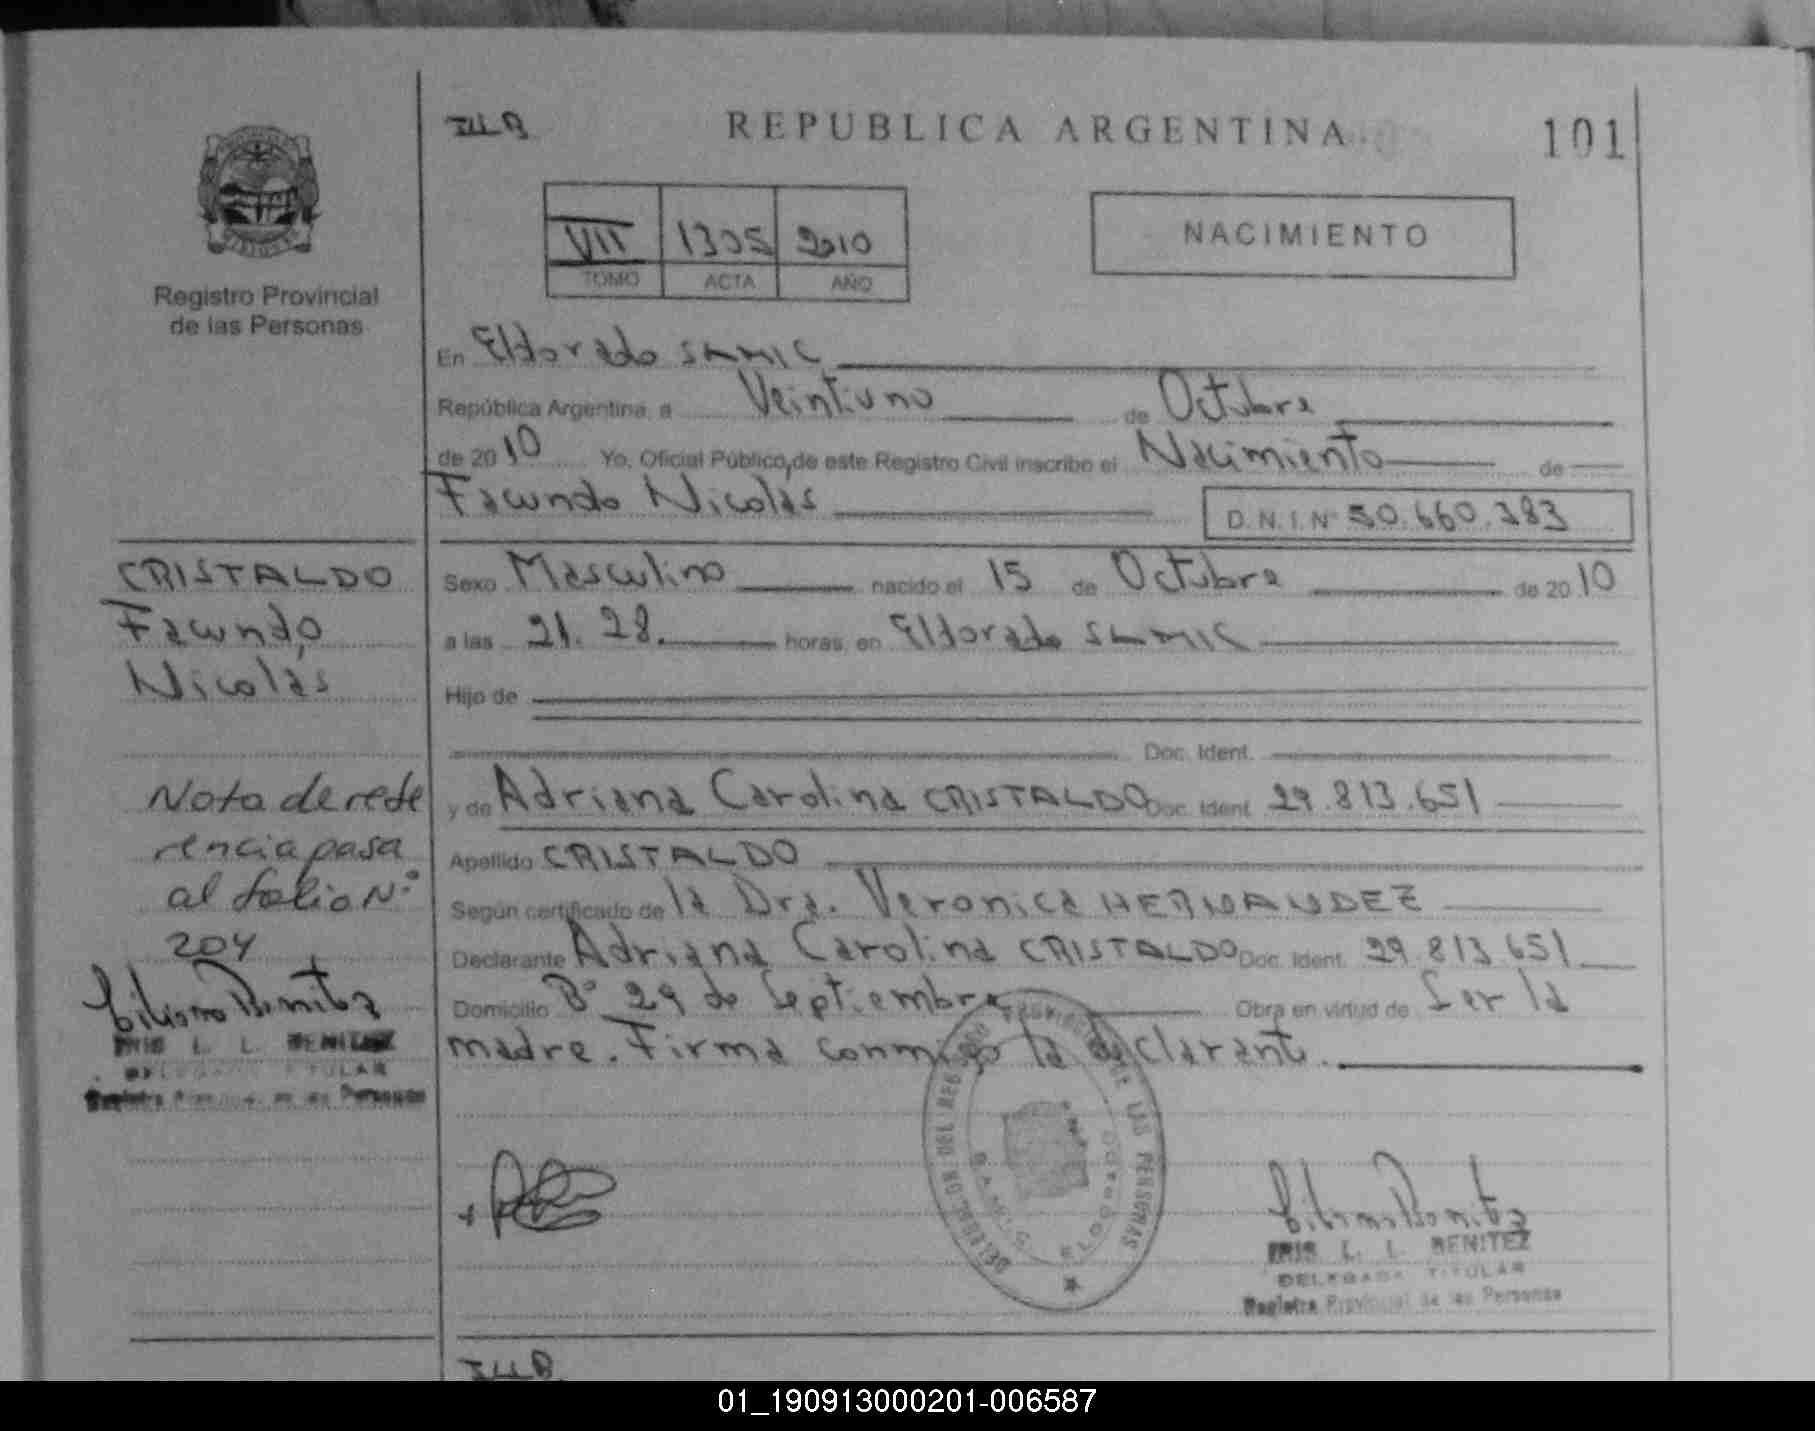 REPUBLICA ARGENTINA
101
VII 1305 2010
TOMO ACTA AÑO
NACIMIENTO
Registro Provincial
de las Personas
En Eldorado SAMIC
República Argentina, a Veintiuno de Octubre
de 2010 Yo, Oficial Público, de este Registro Civil inscribo el Nacimiento de
Facundo Nicolás D.N.I.Nº 50.660.383
CRISTALDO
Facundo
Nicolás
Sexo Masculino nacido el 15 de Octubre de 2010
a las 21.28. horas, en Eldorado SAMIC
Hijo de
Doc. Ident.
y de Adriana Carolina CRISTALDO Doc. Ident. 29.813.651
Apellido CRISTALDO
Según certificado de la Dra. Veronica HERNANDEZ
Declarante Adriana Carolina CRISTALDO Doc. Ident. 29.813.651
Domicilio Bº 29 de Septiembre Obra en virtud de Ser la
madre. Firma conmigo la declarante.
Nota de refe
rencia pasa
al folio Nº
204
IRIS L. L. BENITEZ
DELEGADA TITULAR
Registro Provincial de las Personas
DELEGACION DEL REGISTRO PROVINCIAL DE LAS PERSONAS
S.A.M.I.C.
ELDORADO
IRIS L. L. BENITEZ
DELEGADA TITULAR
Registro Provincial de las Personas
01_190913000201-006587